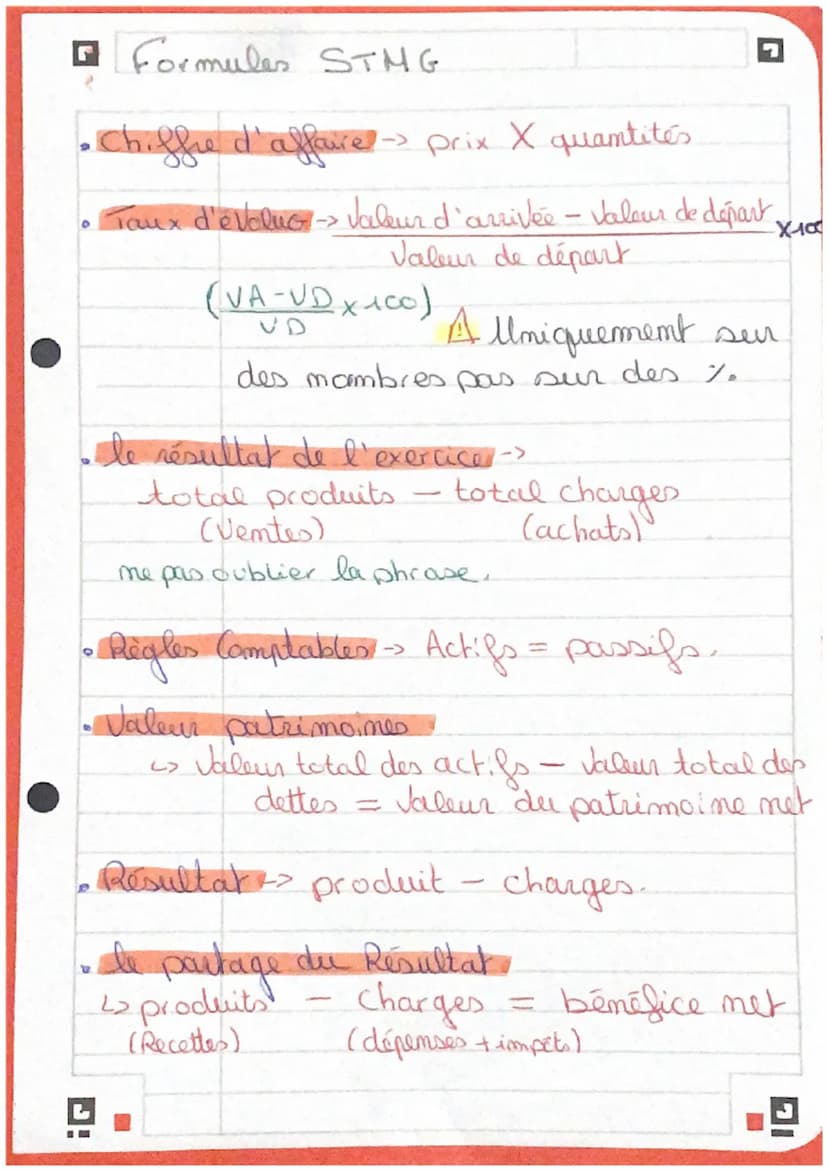 Formules STMG
• Chiffre d'affaire -> prix X quantités
• Taux d'évoluo -> Valeur d'arrivée - Valeur de départ X100
Valeur de départ
(VA-VD x 100)
VD
⚠ Uniquement sur
des nombres pas sur des %.
• le résultat de l'exercice ->
total produits - total charges
(Ventes) (achats)
ne pas oublier la phrase.
• Règles Comptables -> Actifs = passifs.
• Valeur patrimoines
↳ Valeur total des actifs - Valeur total des
dettes = Valeur du patrimoine net
• Résultat -> produit - charges.
• le partage du Résultat
↳ produits - Charges = bénéfice net
(Recettes) (dépenses + impôts)